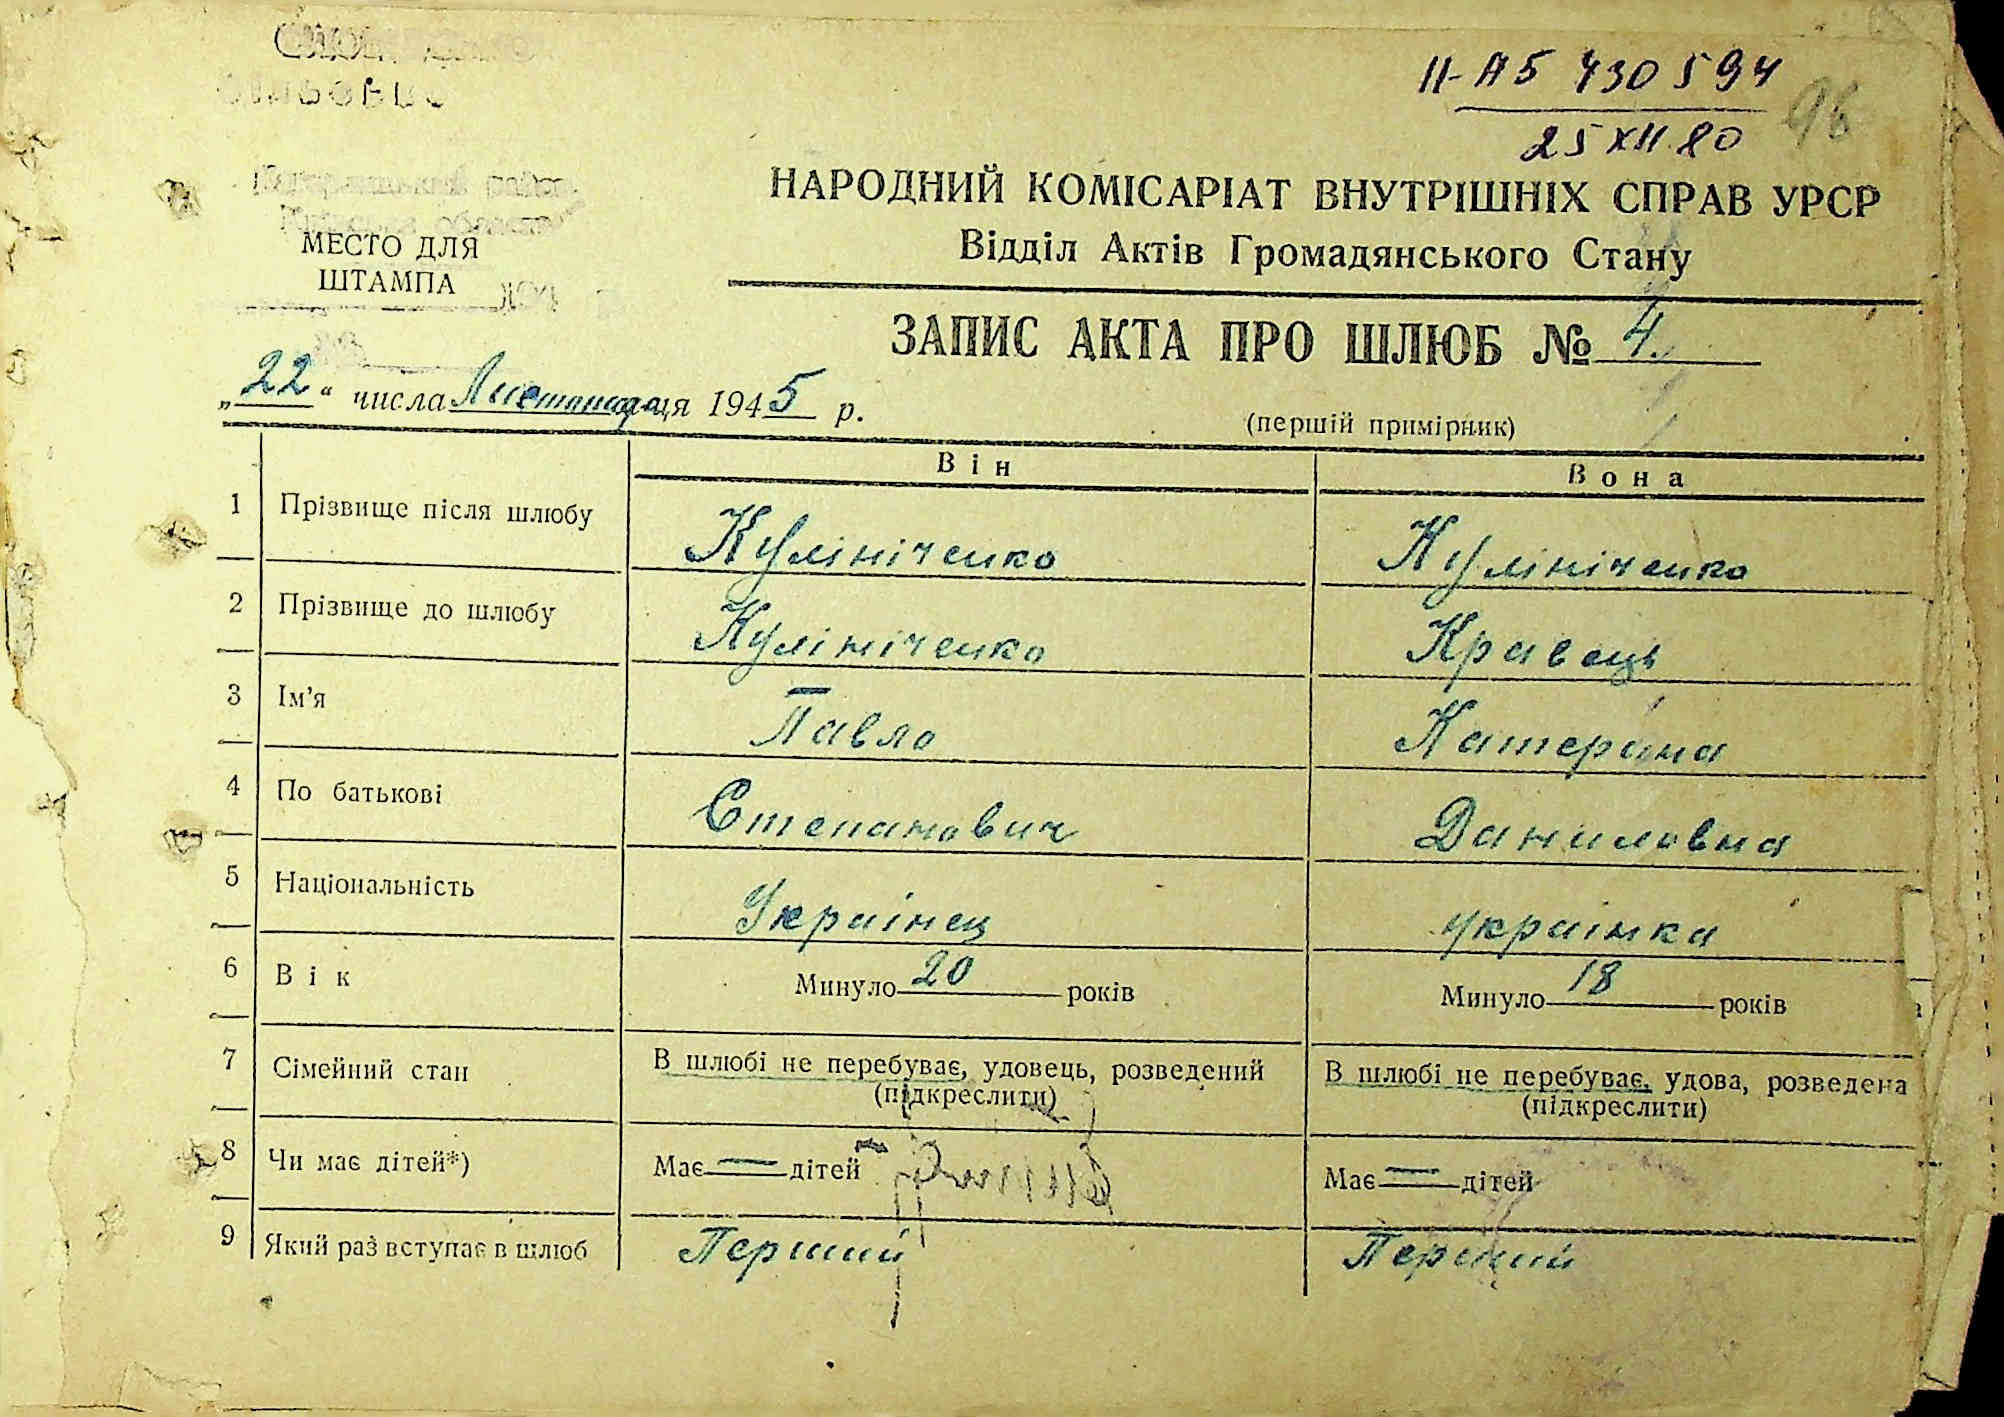 II-АБ 430594
25 XII 80
96
НАРОДНИЙ КОМІСАРІАТ ВНУТРІШНІХ СПРАВ УРСР
Відділ Актів Громадянського Стану
МЕСТО ДЛЯ
ШТАМПА
ЗАПИС АКТА ПРО ШЛЮБ № 4.
„22“ числа Листопада ця 1945 р.
(першій примірник)
Він Вона
1 Прізвище після шлюбу Кулініченко Кулініченко
2 Прізвище до шлюбу Кулініченко Кравець
3 Ім'я Павло Катерина
4 По батькові Степанович Даниловна
5 Національність Українец українка
6 Вік Минуло 20 років Минуло 18 років
7 Сімейний стан В шлюбі не перебуває, удовець, розведений В шлюбі не перебуває, удова, розведена
(підкреслити) (підкреслити)
8 Чи має дітей*) Має — дітей Має — дітей
9 Який раз вступає в шлюб Перший Перший